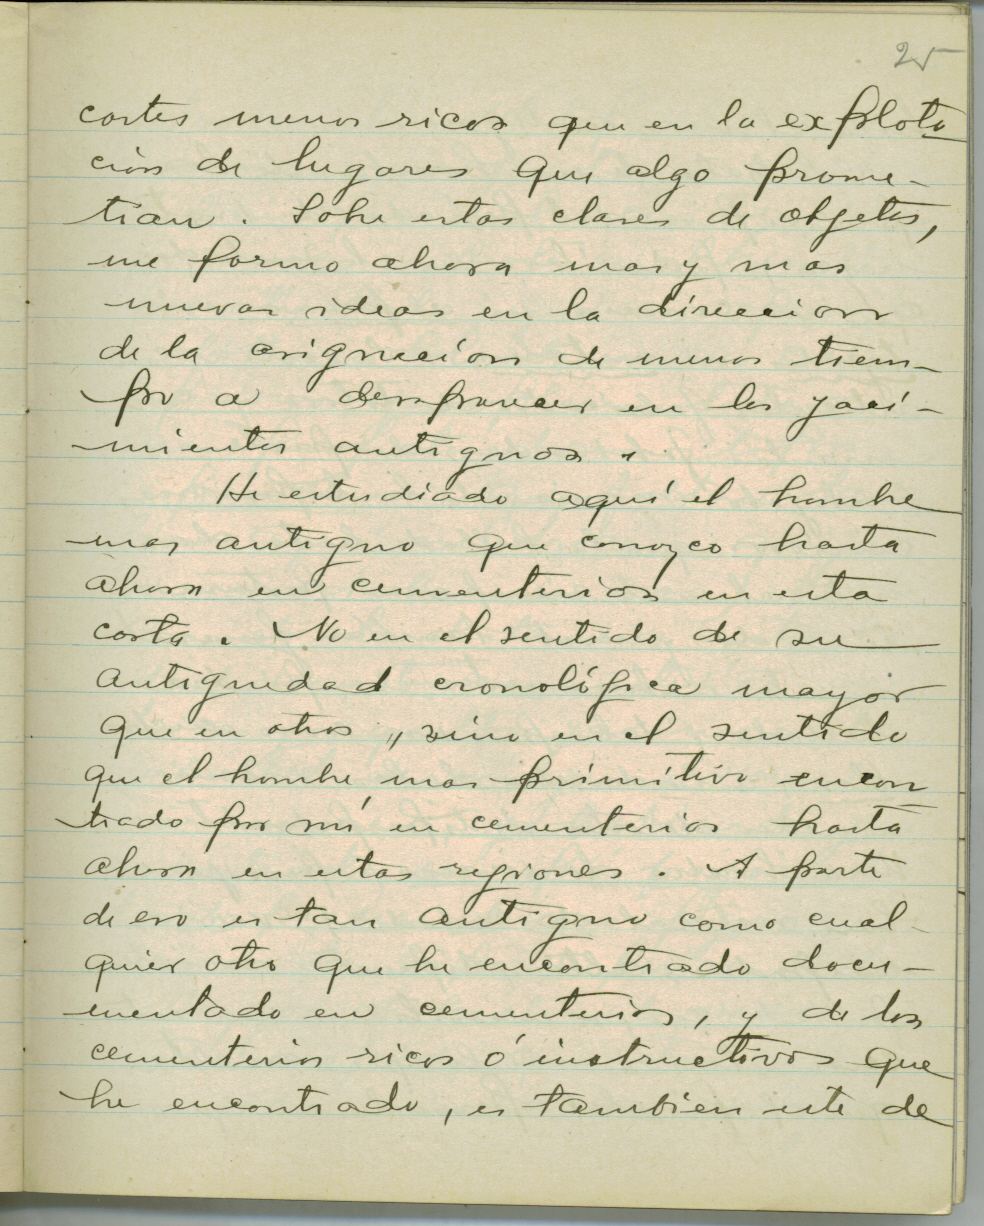 25
cortes menos ricos que en la explota
ción de lugares que algo prome-
tian. Sobre estas clases de objetos,
me formo ahora mas y mas
nuevas ideas en la direccion
de la asignación de menos tiem-
po a desaparecer en los yaci-
mientos antiguos.
He estudiado aquí el hombre
mas antiguo que conozco hasta
ahora en cementerios en esta
costa. No en el sentido de su
antiguedad cronológica mayor
que en otros, sino en el sentido
que el hombre mas primitivo encon
trado por mí en cementerios hasta
ahora en estas regiones. A parte
de eso es tan antiguo como cual-
quier otro que he encontrado docu-
mentado en cementerios, y de los
cementerios ricos ó instructivos que
he encontrado, es tambien este de